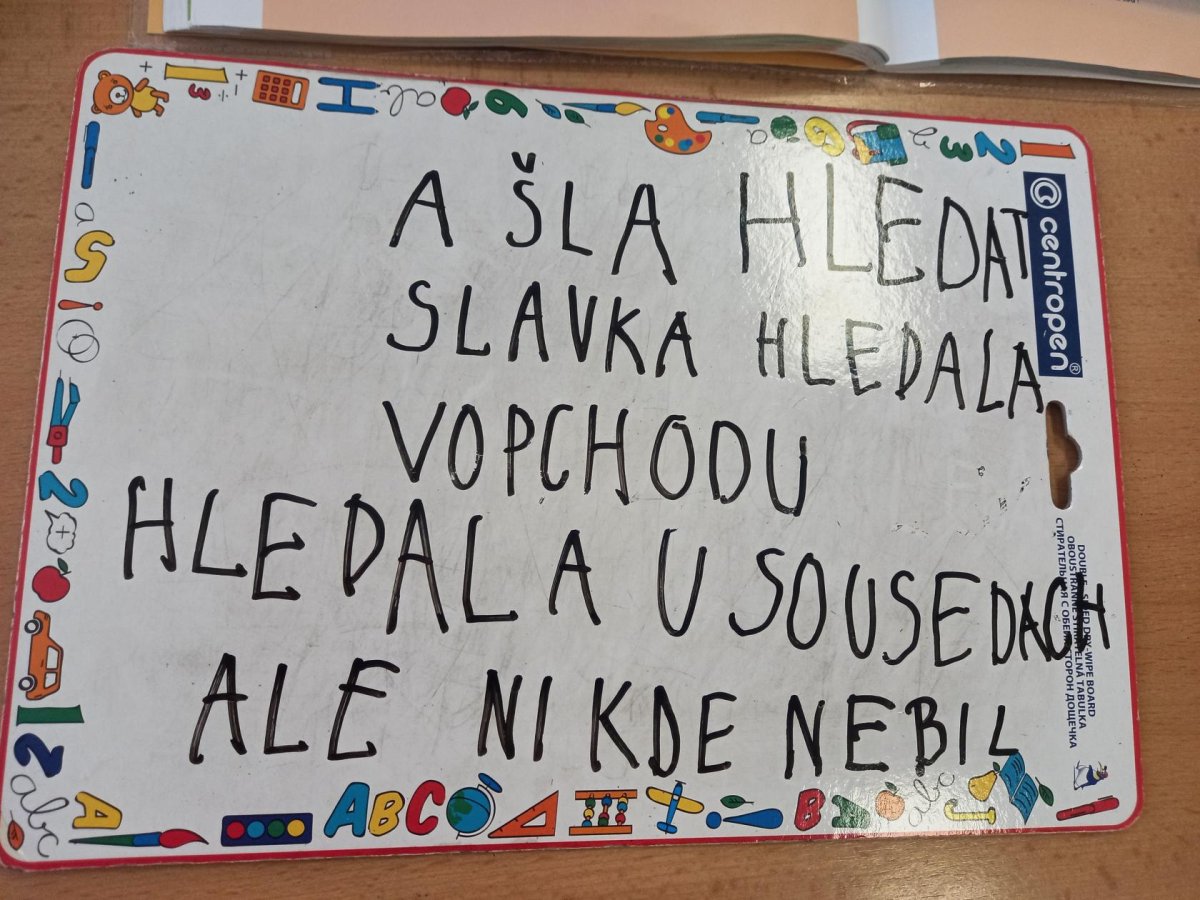 A ŠLA HLEDAT
SLAVKA HLEDALA
VOPCHODU
HLEDALA U SOUSEDACH
ALE NIKDE NEBIL
centropen®
DOUBLE-SIDED DRY-WIPE BOARD
OBOUSTRANNĚ STÍRATELNÁ TABULKA
СТИРАТЕЛЬНАЯ С ОБЕИХ СТОРОН ДОЩЕЧКА